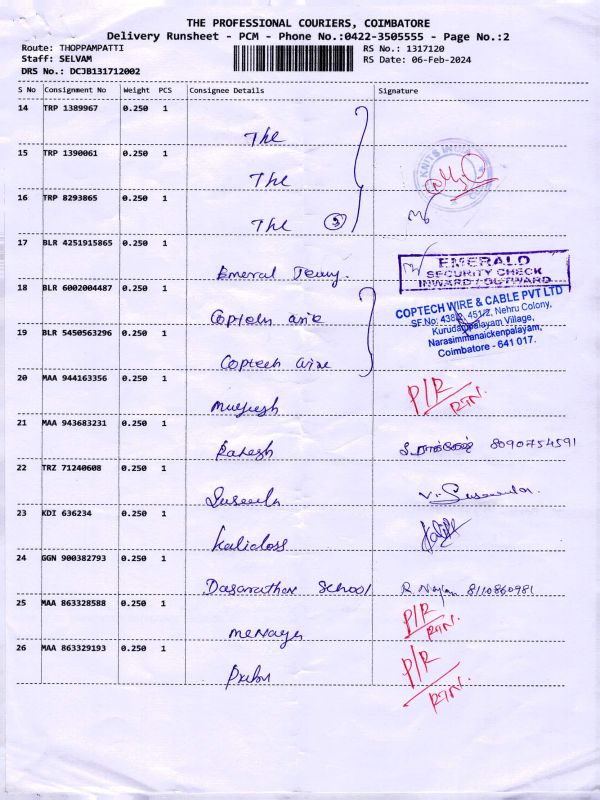 THE PROFESSIONAL COURIERS, COIMBATORE
Delivery Runsheet - PCM - Phone No.:0422-3505555 - Page No.:2
Route: THOPPAMPATTI RS No.: 1317120
Staff: SELVAM RS Date: 06-Feb-2024
DRS No.: DCJB131712002
S No Consignment No Weight PCS Consignee Details Signature
14 TRP 1389967 0.250 1
The
15 TRP 1390061 0.250 1
The
KNITS INDIA
16 TRP 8293865 0.250 1
The 3
17 BLR 4251915865 0.250 1
Emeral Jewry.
EMERALD
SECURITY CHECK
INWARD / OUTWARD
18 BLR 6002004487 0.250 1
Coptech wire
COPTECH WIRE & CABLE PVT LTD
SF.No: 438/2, 451/2, Nehru Colony,
Kurudampalayam Village,
Narasimmanaickenpalayam,
Coimbatore - 641 017.
19 BLR 5450563296 0.250 1
Coptech wire
20 MAA 944163356 0.250 1
Murugesh P/R RTN.
21 MAA 943683231 0.250 1
Rakesh 8090754591
22 TRZ 71240608 0.250 1
Suseela V. Suseela.
23 KDI 636234 0.250 1
Kalidoss
24 GGN 900382793 0.250 1
Dasarathan School 8110860981
25 MAA 863328588 0.250 1
P/R RTN.
26 MAA 863329193 0.250 1
Prabu P/R RTN.